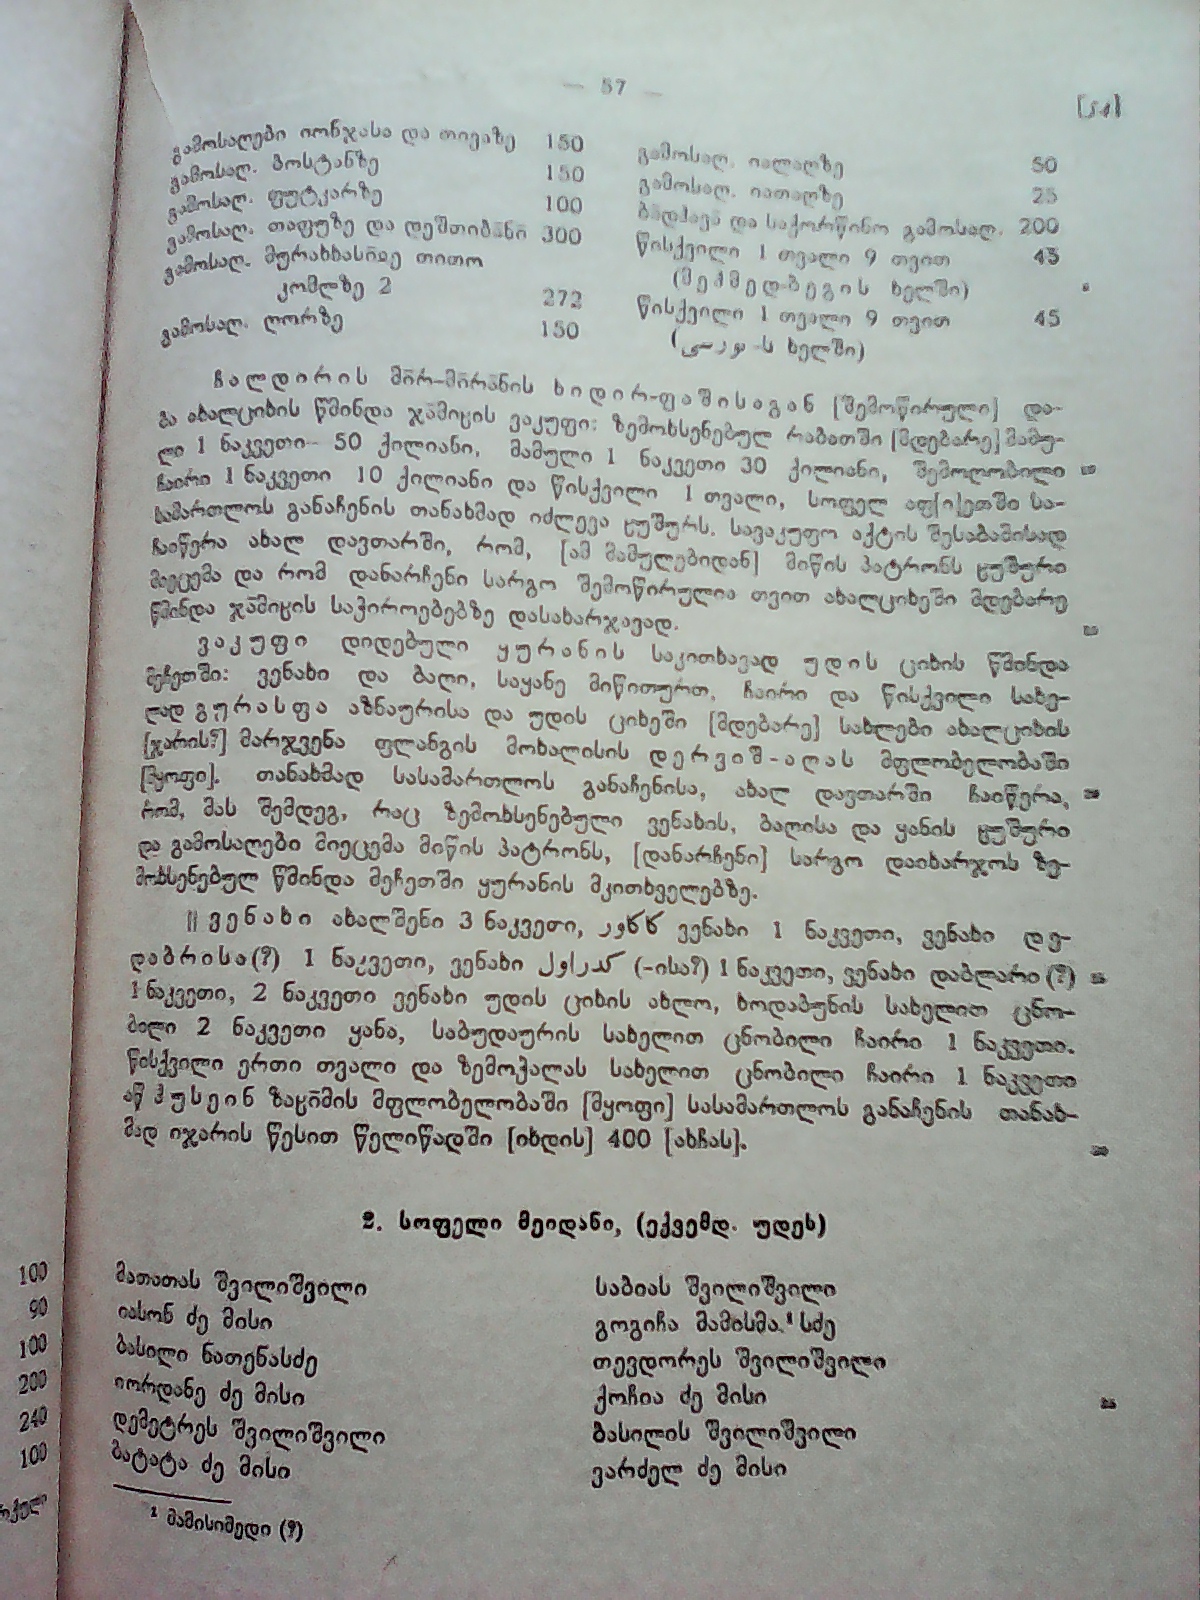 — 57 —
გამოსაღები იონჯასა და თივაზე 150
გამოსაღ. ბოსტანზე 150
გამოსაღ. ფუტკარზე 100
გამოსაღ. თაფუზე და დეშთიბანი 300
გამოსაღ. მურახხასიე თითო
კომლზე 2 272
გამოსაღ. ღორზე 150
გამოსაღ. იალაღზე 50
გამოსაღ. იათაღზე 25
ბადჰავა და საქორწინო გამოსაღ. 200
წისქვილი 1 თვალი 9 თვით 45
(მეჰმედ-ბეგის ხელში)
წისქვილი 1 თვალი 9 თვით 45
-ს ხელში)
ჩალდირის მირ-მირანის ხიდირ-ფაშისაგან [შემოწირული] და-
ბა ახალციხის წმინდა ჯამიცის ვაკუფი: ზემოხსენებულ რაბათში [მდებარე] მამუ-
ლი 1 ნაკვეთი— 50 ქილიანი, მამული 1 ნაკვეთი 30 ქილიანი, შემოღობილი
ჩაირი 1 ნაკვეთი 10 ქილიანი და წისქვილი 1 თვალი, სოფელ აფ[ი]ეთში სა-
სამართლოს განაჩენის თანახმად იძლევა ყუშურს. სავაკუფო აქტის შესაბამისად
ჩაიწერა ახალ დავთარში, რომ, [ამ მამულებიდან] მიწის პატრონს ყუშური
მიეცემა და რომ დანარჩენი სარგო შემოწირულია თვით ახალციხეში მდებარე
წმინდა ჯამიცის საჭიროებებზე დასახარჯავად.
ვაკუფი დიდებული ყურანის საკითხავად უდის ციხის წმინდა
მეჩეთში: ვენახი და ბაღი, საყანე მიწითურთ, ჩაირი და წისქვილი სახე-
ლად გურასფა აზნაურისა და უდის ციხეში [მდებარე] სახლები ახალციხის
[ჯარის?] მარჯვენა ფლანგის მოხალისის დერვიშ-აღას მფლობელობაში
[მყოფი]. თანახმად სასამართლოს განაჩენისა, ახალ დავთარში ჩაიწერა,
რომ, მას შემდეგ, რაც ზემოხსენებული ვენახის, ბაღისა და ყანის ყუშური
და გამოსაღები მიეცემა მიწის პატრონს, [დანარჩენი] სარგო დაიხარჯოს ზე-
მოხსენებულ წმინდა მეჩეთში ყურანის მკითხველებზე.
|| ვენახი ახალშენი 3 ნაკვეთი, ვენახი 1 ნაკვეთი, ვენახი დე-
დაბრისა(?) 1 ნაკვეთი, ვენახი (-ისა?) 1 ნაკვეთი, ვენახი დაბლარი (?)
1 ნაკვეთი, 2 ნაკვეთი ვენახი უდის ციხის ახლო, ხოდაბუნის სახელით ცნო-
ბილი 2 ნაკვეთი ყანა, საბუდაურის სახელით ცნობილი ჩაირი 1 ნაკვეთი.
წისქვილი ერთი თვალი და ზემოჭალას სახელით ცნობილი ჩაირი 1 ნაკვეთი
აწ ჰუსეინ ზაციმის მფლობელობაში [მყოფი] სასამართლოს განაჩენის თანახ-
მად იჯარის წესით წელიწადში [იხდის] 400 [ახჩას].
2. სოფელი მეიდანი, (ექვემდ. უდეს)
მათათას შვილიშვილი
იასონ ძე მისი
ბასილი ნათენასძე
იორდანე ძე მისი
დემეტრეს შვილიშვილი
ბატატა ძე მისი
საბიას შვილიშვილი
გოგიჩა მამისმა¹სძე
თევდორეს შვილიშვილი
ქოჩია ძე მისი
ბასილის შვილიშვილი
ვარძელ ძე მისი
¹ მამისიმედი (?)
100
90
100
200
240
100